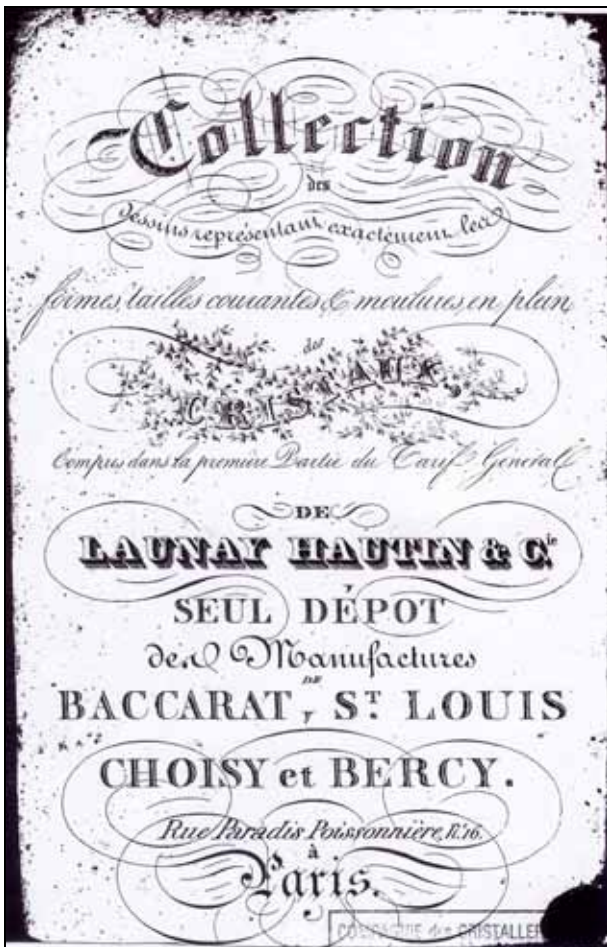 Collection
des
dessins représentant exactement les
formes, tailles courantes, & moulures en plein
des
CRISTAUX,
Compris dans la première Partie du Tarif Général
DE
LAUNAY HAUTIN & C.ie
SEUL DÉPOT
des Manufactures
DE
BACCARAT, ST. LOUIS
CHOISY et BERCY.
Rue Paradis Poissonnière, N.° 16.
à
Paris.
COMPAGNIE des CRISTALLER